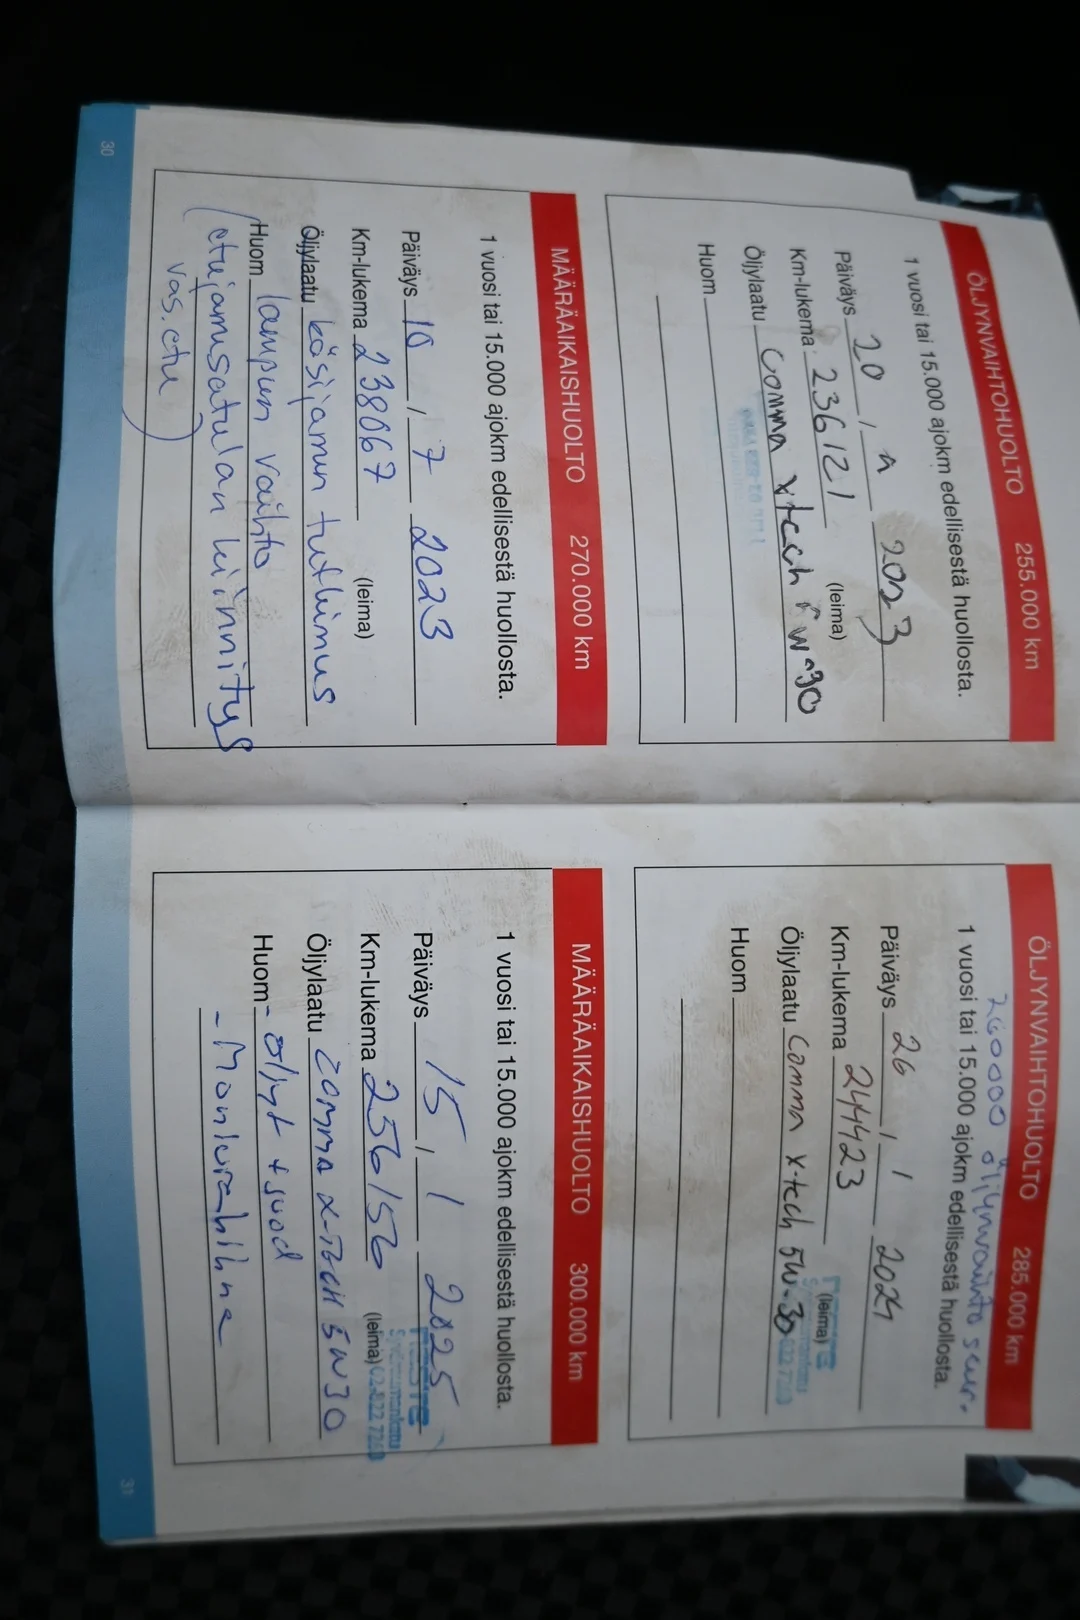 ÖLJYNVAIHTOHUOLTO 255.000 km
1 vuosi tai 15.000 ajokm edellisestä huollosta.
Päiväys 20 / 2023
Km-lukema 236121 (leima)
Öljylaatu Comma xtech
Huom
MÄÄRÄAIKAISHUOLTO 270.000 km
1 vuosi tai 15.000 ajokm edellisestä huollosta.
Päiväys 10 / 7 2023
Km-lukema 238067 (leima)
Öljylaatu käsijarrun tutkimus
Huom lampun vaihto
(etujarrusatulan kiinnitys
vas. etu)
30
ÖLJYNVAIHTOHUOLTO 285.000 km
260000 öljynvaihto seur.
1 vuosi tai 15.000 ajokm edellisestä huollosta.
Päiväys 26 / 1 2024
Km-lukema 244423 (leima)
Öljylaatu Comma x-tech 5W-30
Huom
MÄÄRÄAIKAISHUOLTO 300.000 km
1 vuosi tai 15.000 ajokm edellisestä huollosta.
Päiväys 15 / 1 2025
Km-lukema 256156 (leima) 02-822 7260
Öljylaatu comma x-tech 5W30
Huom - öljyt + suod
- Moniurahihna
31